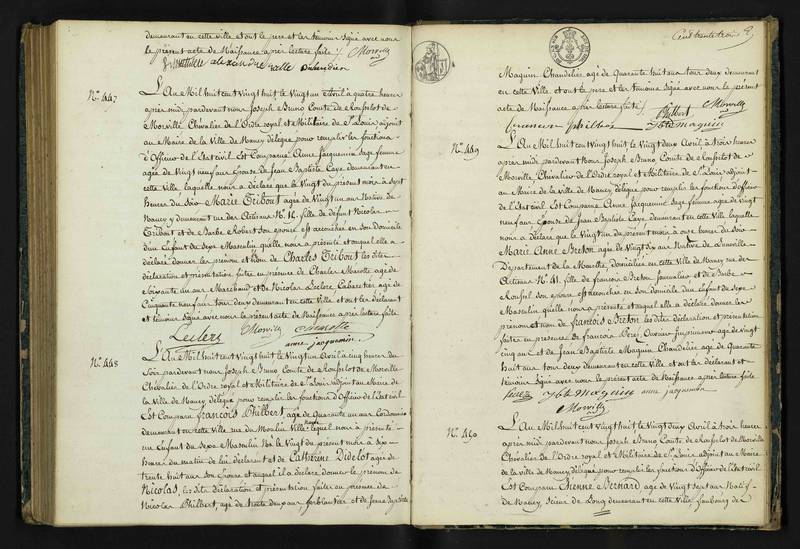 demeurant en cette Ville et ont le pere et les témoins Signé avec nous
le présent acte de Naissance après lecture faite /.
N° 447
L'An Mil huit cent Vingt huit le Vingt un Avril à quatre heures
après midi pardevant nous Joseph Bruno Comte de
Morville, Chevalier de l'Ordre royal et Militaire de St Louis adjoint
au Maire de la Ville de Nancy délégué pour remplir les fonctions
d'Officier de l'Etat civil Est Comparue Anne Jacquemin Sage femme
agée de Vingt neuf ans Epouse de Jean Baptiste Caye demeurant en
cette Ville, laquelle nous a déclaré que le Vingt du présent mois à Sept
heures du Soir Marie Tribout agée de Vingt un ans Native de
Nancy y demeurant rue des Artisans N° 16. fille de défunt Nicolas
Tribout et de Barbe Robert Son épouse est accouchée en Son domicile
d'un Enfant du Sexe Masculin qu'elle nous a présenté et auquel elle a
déclaré donner les prénom et Nom de Charles Tribout les dites
déclaration et présentation faites en présence de Charles Marotte agé de
Soixante un ans Marchand et de Nicolas Leclerc Cabaretier agé de
Cinquante neuf ans tous deux demeurant en cette Ville et ont les déclarant
et témoins Signé avec nous le présent acte de Naissance après lecture faite
Leclerc Morville Marotte
anne jacquemin.
N° 448
L'An Mil huit cent Vingt huit le Vingt un Avril à cinq heures du
Soir pardevant nous Joseph Bruno Comte de Morville
Chevalier de l'Ordre royal et Militaire de St Louis adjoint au Maire de
la Ville de Nancy délégué pour remplir les fonctions d'Officier de l'Etat civil
Est Comparu françois Philbert, agé de Quarante un ans Cordonnier
demeurant en cette Ville rue du Moulin Ville lequel nous a présenté
un Enfant du Sexe Masculin Né le Vingt du présent mois à Six
heures du matin de lui déclarant et de Catherine Didelot agée de
trente huit ans Son épouse et auquel il a déclaré donner le prénom de
Nicolas, les dites déclaration et présentation faites en présence de
Nicolas Philbert, agé de trente deux ans ferblantier et de Jean Baptiste
Cent trente trois
Maquin Chandelier agé de Quarante huit ans tous deux demeurant
en cette Ville et ont le pere et les témoins Signé avec nous le présent
acte de Naissance après lecture faite /.
Philbert Morville
Jbte maquin
N° 449
L'An Mil huit cent Vingt huit le Vingt deux Avril, à trois heures
après midi pardevant nous Joseph Bruno Comte de
Morville, Chevalier de l'Ordre royal et Militaire de St Louis adjoint
au Maire de la Ville de Nancy délégué pour remplir les fonctions d'Officier
de l'Etat civil Est Comparue Anne Jacquemin Sage femme agée de Vingt
neuf ans Epouse de Jean Baptiste Caye demeurant en cette Ville laquelle
nous a déclaré que le Vingt un du présent mois à onze heures du Soir
Marie Anne Breton agée de Vingt ans Native de
Département de la Moselle, domiciliée en cette Ville de Nancy rue des
Artisans N° 41. fille de françois Breton Journalier et de Barbe
Son épouse est accouchée en Son domicile d'un Enfant du Sexe
Masculin qu'elle nous a présenté et auquel elle a déclaré donner les
prénom et nom de françois Breton les dites déclaration et présentation
faites en présence de francois Ouvrier Imprimeur agé de Vingt
cinq ans et de Jean Baptiste Maquin Chandelier agé de Quarante
huit ans tous deux demeurant en cette Ville, et ont les déclarant et
témoins Signé avec nous le présent acte de Naissance après lecture faite
Jbte Maquin anne jacquemin
Morville
N° 450
L'An Mil huit cent Vingt huit le Vingt deux Avril à trois heures
après midi pardevant nous Joseph Bruno Comte de Morville
Chevalier de l'Ordre royal et Militaire de St Louis, Adjoint au Maire
de la Ville de Nancy délégué pour remplir les fonctions d'Officier de l'Etat civil
Est Comparu Etienne Bernard agé de Vingt sept ans Natif
de Nancy, Scieur de Long demeurant en cette Ville, faubourg de